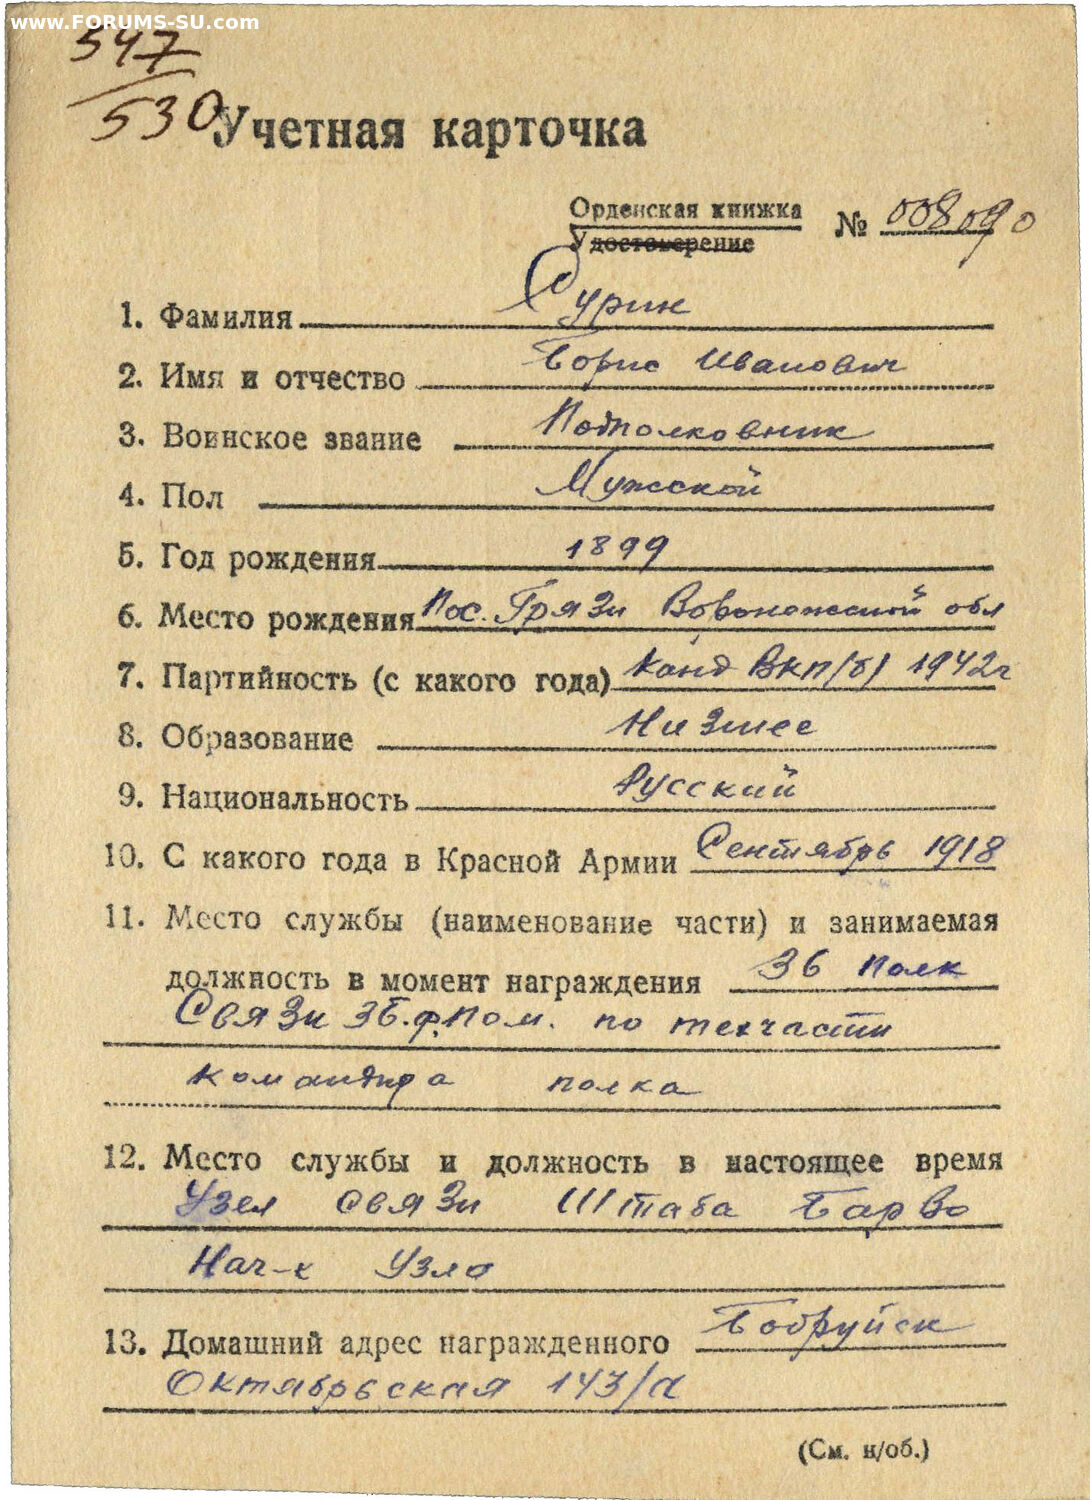 www.FORUMS-SU.com
547
530
Учетная карточка
Орденская книжка
Удостоверение
№ 008090
1. Фамилия Сурин
2. Имя и отчество Борис Иванович
3. Воинское звание Подполковник
4. Пол Мужской
5. Год рождения 1899
6. Место рождения Пос. Грязи Воронежской обл
7. Партийность (с какого года) Канд ВКП/б/ 1942г
8. Образование Низшее
9. Национальность Русский
10. С какого года в Красной Армии Сентябрь 1918
11. Место службы (наименование части) и занимаемая
должность в момент награждения 36 полк
Связи 3Б.Ф. Пом. по техчасти
командира полка
12. Место службы и должность в настоящее время
Узел связи Штаба БарВо
Нач-к Узла
13. Домашний адрес награжденного Бобруйск
Октябрьская 143/а
(См. н/об.)